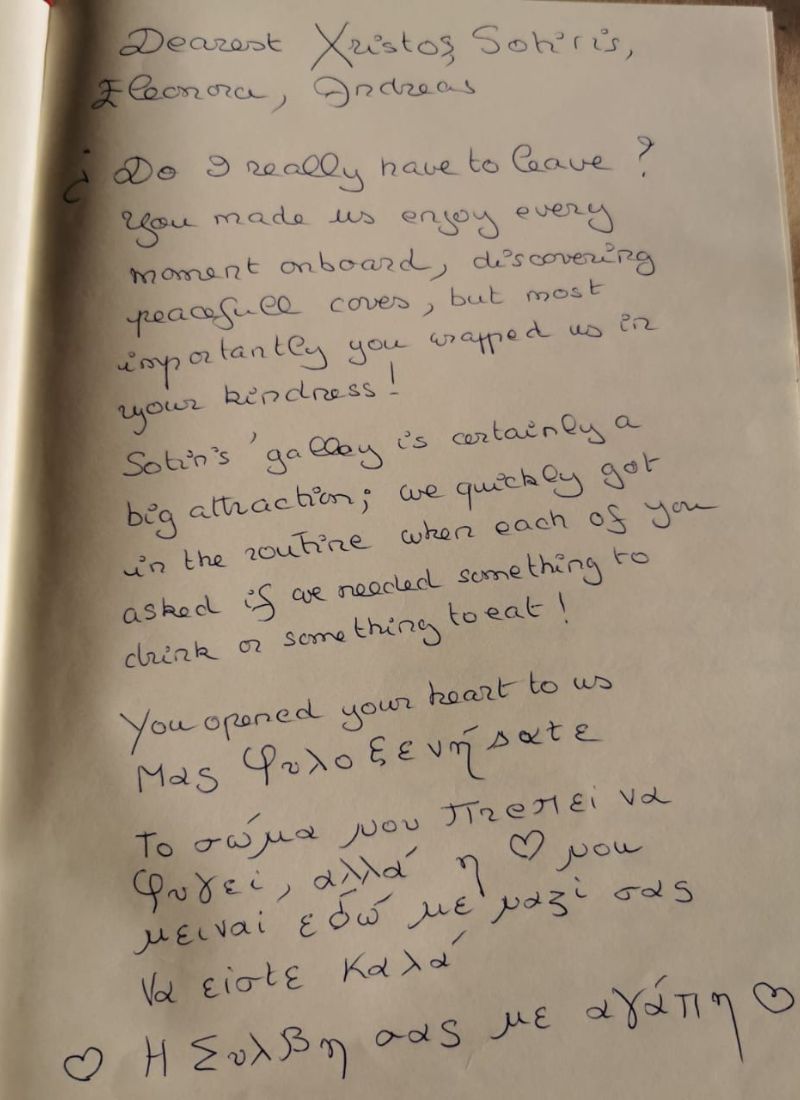 Dearest Χristoς Sotiris,
Eleonora, Andreas
¿ Do I really have to leave ?
You made us enjoy every
moment onboard, discovering
peacefull coves, but most
importantly you wrapped us in
your kindness !
Sotiri's 'galley is certainly a
big attraction; we quickly got
in the routine when each of you
asked if we needed something to
drink or something to eat !
You opened your heart to us
Μας φυλοξενήσατε
Το σώμα μου πρεπει να
φυγει, αλλά η ♡ μου
μειναι εδώ με μαζι σας
Να είστε καλά
♡ Η Συλβη σας με αγάπη ♡